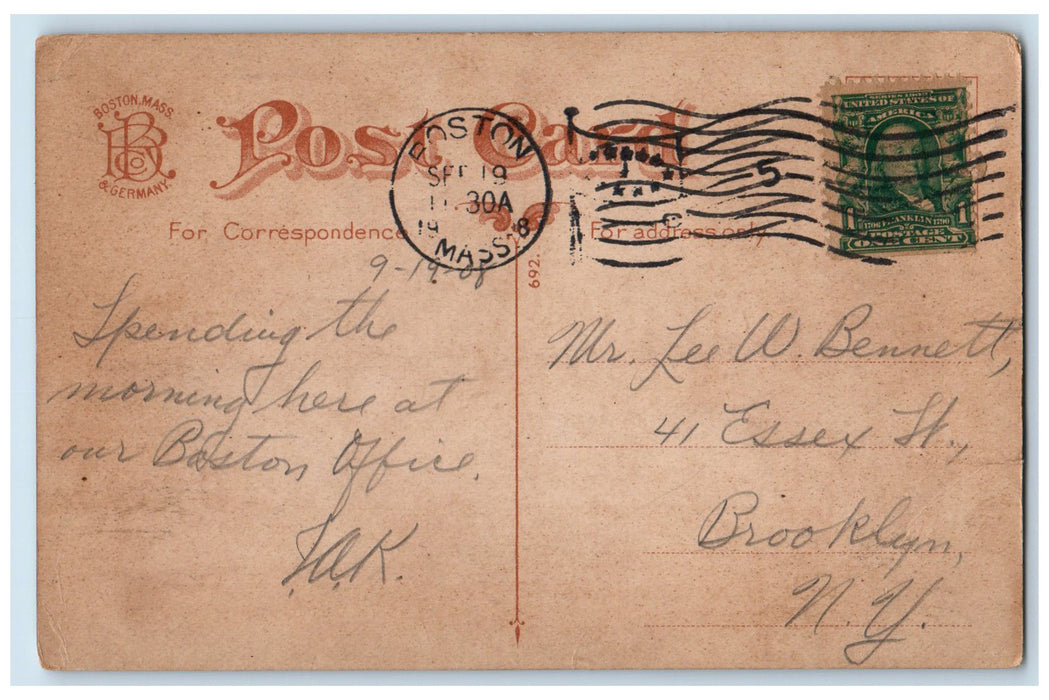 BOSTON, MASS.
RB
CO
& GERMANY.
Post Card
BOSTON
SEP 19
30A
19 8
MASS.
5
C
SERIES 1902
UNITED STATES OF
AMERICA
1 FRANKLIN 1
1706 1790
POSTAGE
ONE CENT
For Correspondence
For address only
692.
9-19-08
Spending the
morning here at
our Boston Office.
Mr. Lee W. Bennett,
41 Essex St.,
Brooklyn,
N. Y.